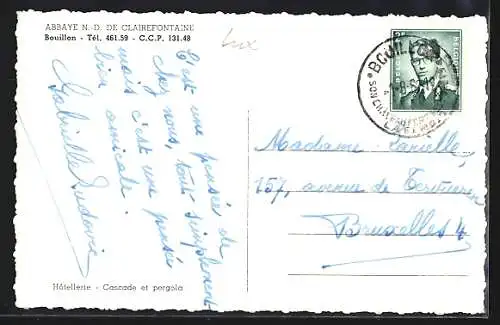 ABBAYE N.-D. DE CLAIREFONTAINE
Bouillon - Tél. 461.59 - C.C.P. 131.48
Lux
C'est une pensée de
chez nous, tout simplement
mais c'est une pensée
bien amicale.
Gabrielle Ludovic
BOUILLON
Madame
157, avenue de
Bruxelles 4
Hôtellerie - Cascade et pergola